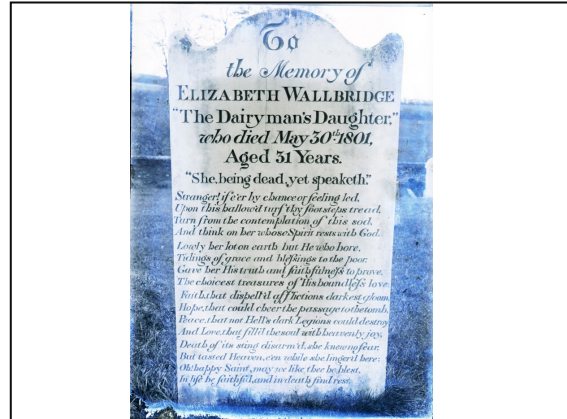 To
the Memory of
ELIZABETH WALLBRIDGE
"The Dairyman's Daughter,"
who died May 30th 1801,
Aged 31 Years.
"She, being dead, yet speaketh."
Stranger! if e'er by chance or feeling led,
Upon this hallow'd turf thy footsteps tread,
Turn from the contemplation of this sod,
And think on her whose Spirit rests with God.
Lowly her lot on earth but He who bore,
Tidings of grace and blessings to the poor.
Gave her His truth and faithfulness to prove,
The choicest treasures of His boundless love.
Faith, that dispell'd afflictions darkest gloom
Hope, that could cheer the passage to the tomb,
Peace, that not Hell's dark Legions could destroy
And Love, that fill'd the soul with heavenly joy,
Death of its sting disarm'd, she knew no fear,
But tasted Heaven, e'en while she linger'd here:
Oh! happy Saint, may we like thee be blest,
In life be faithful, and in death find rest.